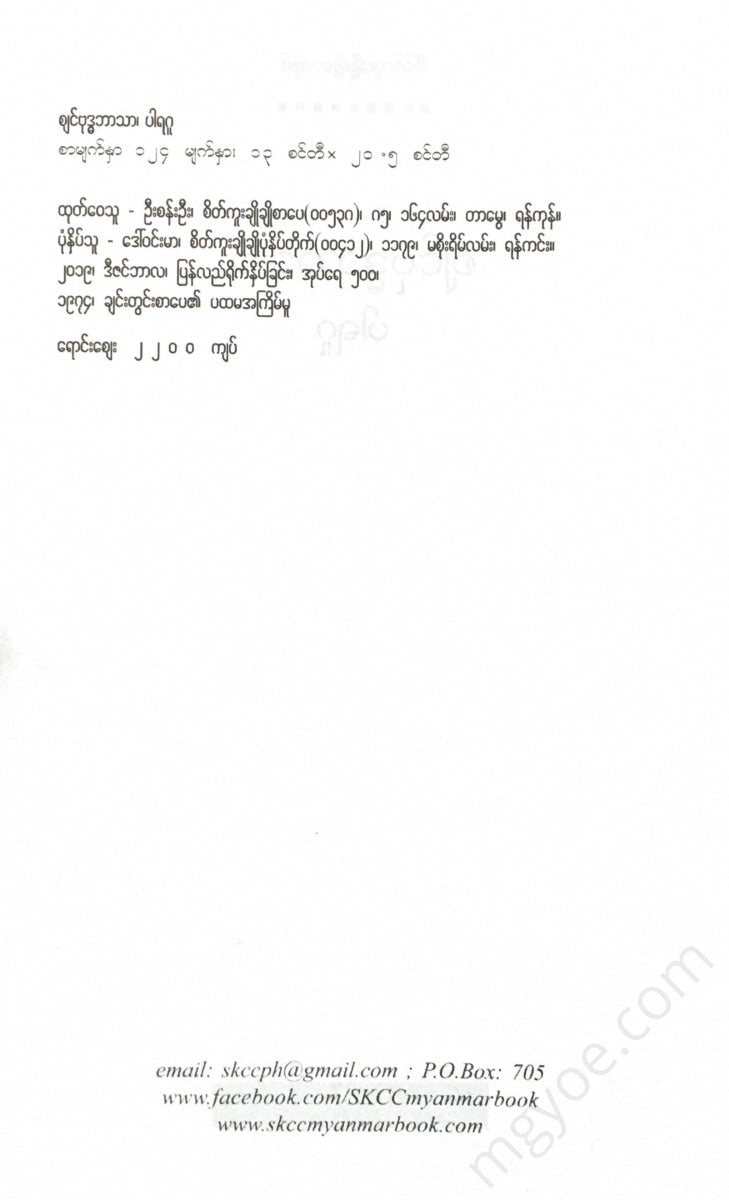 ဈျင်ဗုဒ္ဓဘာသာ၊ ပါရဂူ
စာမျက်နှာ ၁၂၄ မျက်နှာ၊ ၁၃ စင်တီ× ၂၁ .၅ စင်တီ
ထုတ်ဝေသူ - ဦးစန်းဦး၊ စိတ်ကူးချိုချိုစာပေ(၀၀၅၃၇)၊ ၈၅၊ ၁၆၄လမ်း၊ တာမွေ၊ ရန်ကုန်။
ပုံနှိပ်သူ - ဒေါ်ဝင်းမာ၊ စိတ်ကူးချိုချိုပုံနှိပ်တိုက်(၀၀၄၁၂)၊ ၁၁၇၉၊ မစိုးရိမ်လမ်း၊ ရန်ကင်း။
၂၀၁၉၊ ဒီဇင်ဘာလ၊ ပြန်လည်ရိုက်နှိပ်ခြင်း၊ အုပ်ရေ ၅၀၀၊
၁၉၇၄၊ ချင်းတွင်းစာပေ၏ ပထမအကြိမ်မူ
ရောင်းဈေး ၂၂၀၀ ကျပ်
email: skccph@gmail.com ; P.O.Box: 705
www.facebook.com/SKCCmyanmarbook
www.skccmyanmarbook.com
mgyoe.com